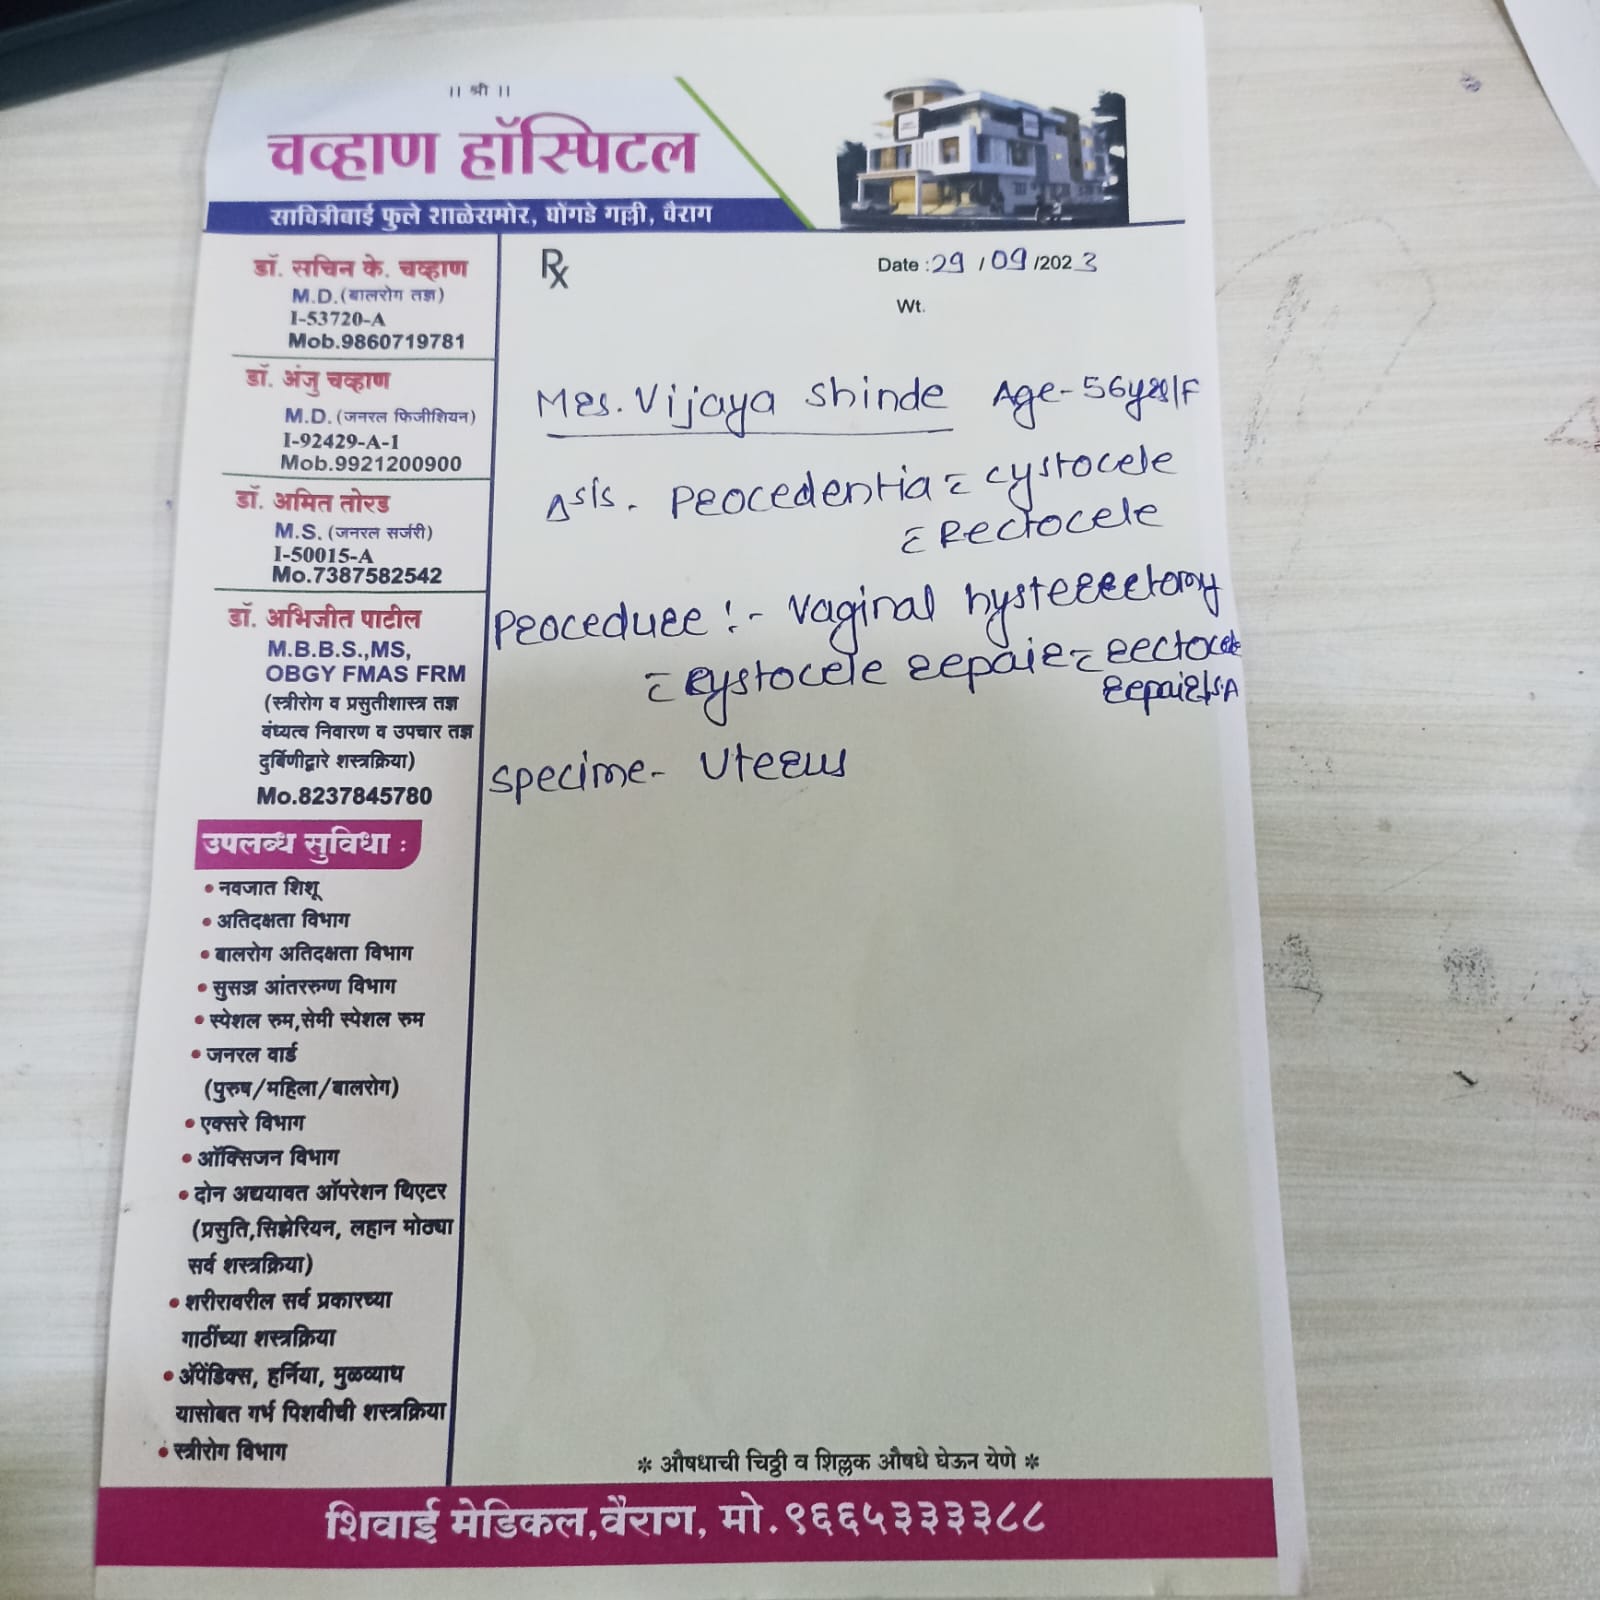 ।। श्री ।।
चव्हाण हॉस्पिटल
सावित्रीबाई फुले शाळेसमोर, घोंगडे गल्ली, वैराग
डॉ. सचिन के. चव्हाण
M.D.(बालरोग तज्ञ)
I-53720-A
Mob.9860719781
डॉ. अंजु चव्हाण
M.D. (जनरल फिजीशियन)
I-92429-A-1
Mob.9921200900
डॉ. अमित तोरड
M.S. (जनरल सर्जरी)
I-50015-A
Mo.7387582542
डॉ. अभिजीत पाटील
M.B.B.S.,MS,
OBGY FMAS FRM
(स्त्रीरोग व प्रसुतीशास्त्र तज्ञ
वंध्यत्व निवारण व उपचार तज्ञ
दुर्बिणीद्वारे शस्त्रक्रिया)
Mo.8237845780
उपलब्ध सुविधा :
• नवजात शिशू
• अतिदक्षता विभाग
• बालरोग अतिदक्षता विभाग
• सुसज्ज आंतररुग्ण विभाग
• स्पेशल रुम,सेमी स्पेशल रुम
• जनरल वार्ड
(पुरुष/महिला/बालरोग)
• एक्सरे विभाग
• ऑक्सिजन विभाग
• दोन अद्ययावत ऑपरेशन थिएटर
(प्रसुति,सिझेरियन, लहान मोठ्या
सर्व शस्त्रक्रिया)
• शरीरावरील सर्व प्रकारच्या
गाठींच्या शस्त्रक्रिया
• अ‍ॅपेंडिक्स, हर्निया, मुळव्याध
यासोबत गर्भ पिशवीची शस्त्रक्रिया
• स्त्रीरोग विभाग
Rx
Date :29/09/2023
Wt.
Mrs. Vijaya Shinde Age-56yrs/F
Δsis. Procedentia c̄ cystocele
c̄ Rectocele
Procedure :- Vaginal hysterectomy
c̄ cystocele repair c̄ rectocele
repair/S.A
Specime- Uterus
* औषधाची चिठ्ठी व शिल्लक औषधे घेऊन येणे *
शिवाई मेडिकल,वैराग, मो.९६६५३३३३८८